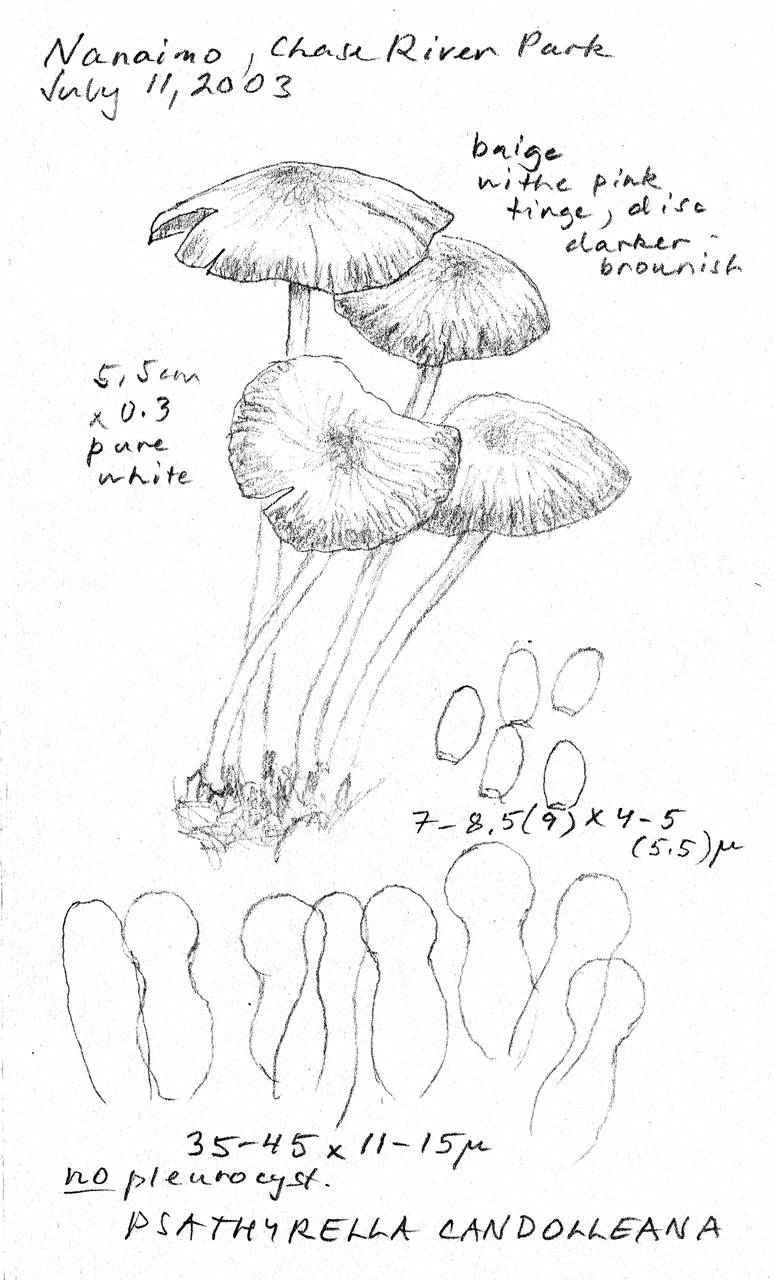 Nanaimo, Chase River Park
July 11, 2003
baige
withe pink
tinge, disc
darker -
brownish
5,5cm
x 0.3
pure
white
7-8.5(9) x 4-5
(5.5)µ
35-45 x 11-15µ
no pleurocyst.
PSATHYRELLA CANDOLLEANA